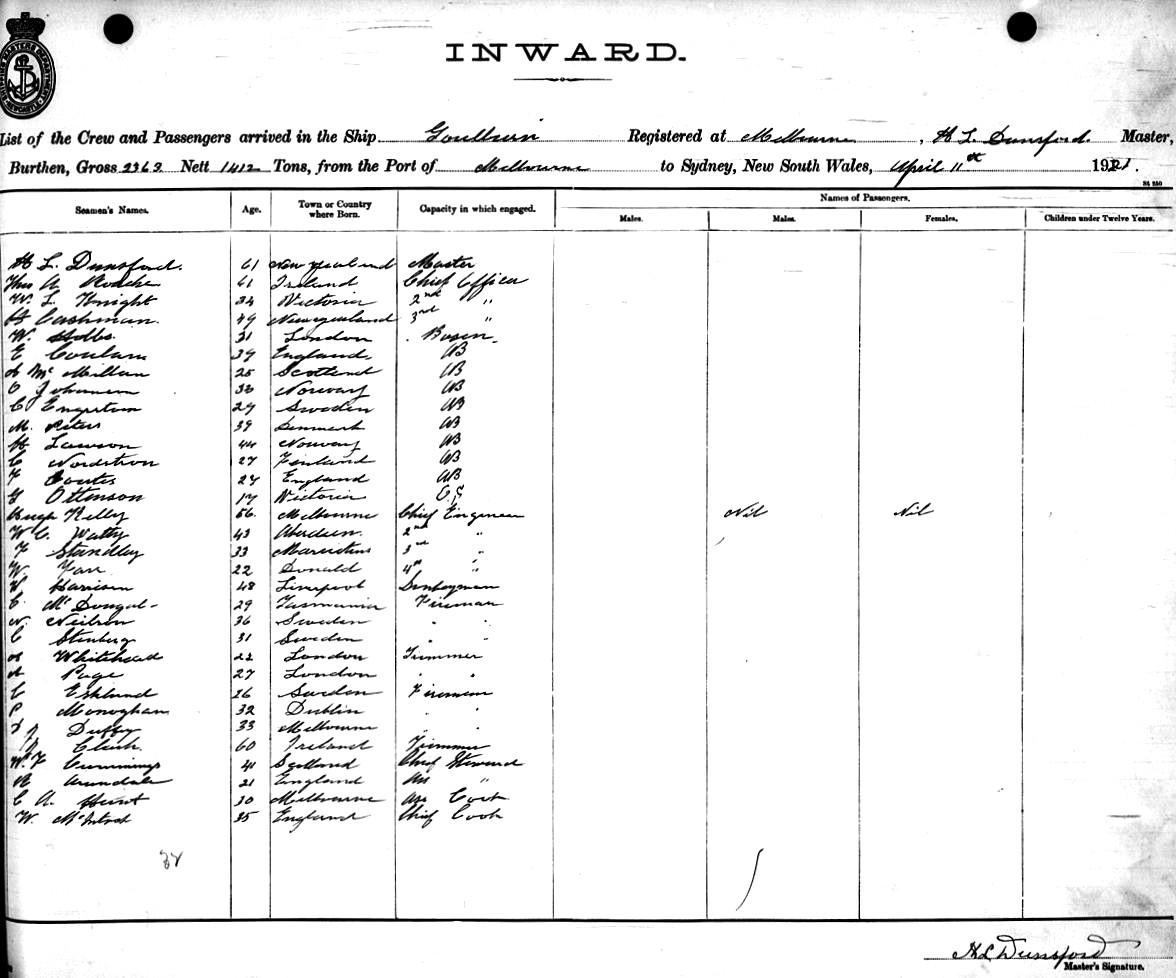 INWARD.
List of the Crew and Passengers arrived in the Ship Goulburn Registered at Melbourne, H L Dunsford. Master,
Burthen, Gross 2363 Nett 1412 Tons, from the Port of Melbourne to Sydney, New South Wales, April 11th 1921.
Seamen's Names. Age. Town or Country where Born. Capacity in which engaged. Names of Passengers.
Males. Males. Females. Children under Twelve Years.
H L. Dunsford. 61 New Zealand Master
Thos A Roache 61 Ireland Chief Officer
W. L. Knight 34 Victoria 2nd "
H Cashman. 49 New Zealand 3rd "
W. Hobbs. 31 London Bosen
E 39 England AB
A McMillan 25 Scotland AB
Johansen Norway AB
C Engstrom 29 Sweden AB
M. Peters 39 Denmark AB
H Lawson 44 Norway AB
C Nordstrom 27 Finland AB
F Coutts 27 England AB
G Ottenson 17 Victoria O.S
Hugh Kelly 56. Melbourne Chief Engineer Nil Nil
W C. Watty 43 Aberdeen. 2nd "
F Standley 33 Mauritius 3rd "
W. Farr 22 Donald 4th "
Harrison 48 Liverpool Donkeyman
C. McDougal 29 Tasmania Fireman
N. Neilson 36 Sweden " "
C Stenberg 31 Sweden " "
A Whitehead 22 London Trimmer
A Page 27 London " "
C Eklund 26 Sweden Fireman
P Monoghan 32 Dublin " "
J Duffy 33 Melbourne " "
J Clark. 60 Ireland Trimmer
W. F Cummings 41 Scotland Chief Steward
R Arundale 21 England Ass "
C A. Hunt 30 Melbourne Ass Cook
W. McIntosh 35 England Chief Cook
32
H L Dunsford
Master's Signature.